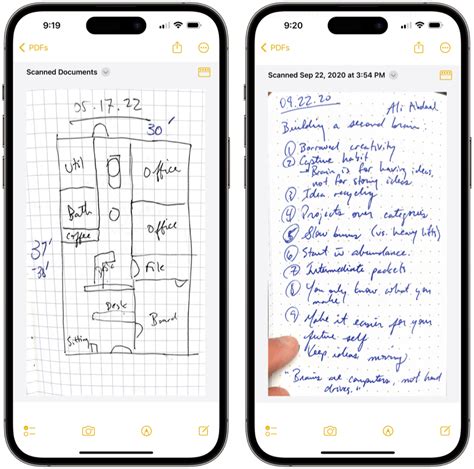 9:19
PDFs
Scanned Documents
05.17.22
30'
Util
Office
Bath
Office
Coffee
37'
-38'
File
Desk
Board
Sitting
9:20
PDFs
Scanned Sep 22, 2020 at 3:54 PM
09.22.20
Ali Abdaal
Building a second brain:
① Borrowed creativity
② Capture habit
↳ Brain is for having ideas,
not for storing ideas
③ Idea recycling
④ Projects over categories
⑤ Slow burns (vs. heavy lifts)
⑥ Start in abundance.
⑦ Intermediate packets
⑧ You only know what you
make
⑨ Make it easier for your
future self
Keep ideas moving
"Brains are computers, not hard
drives."